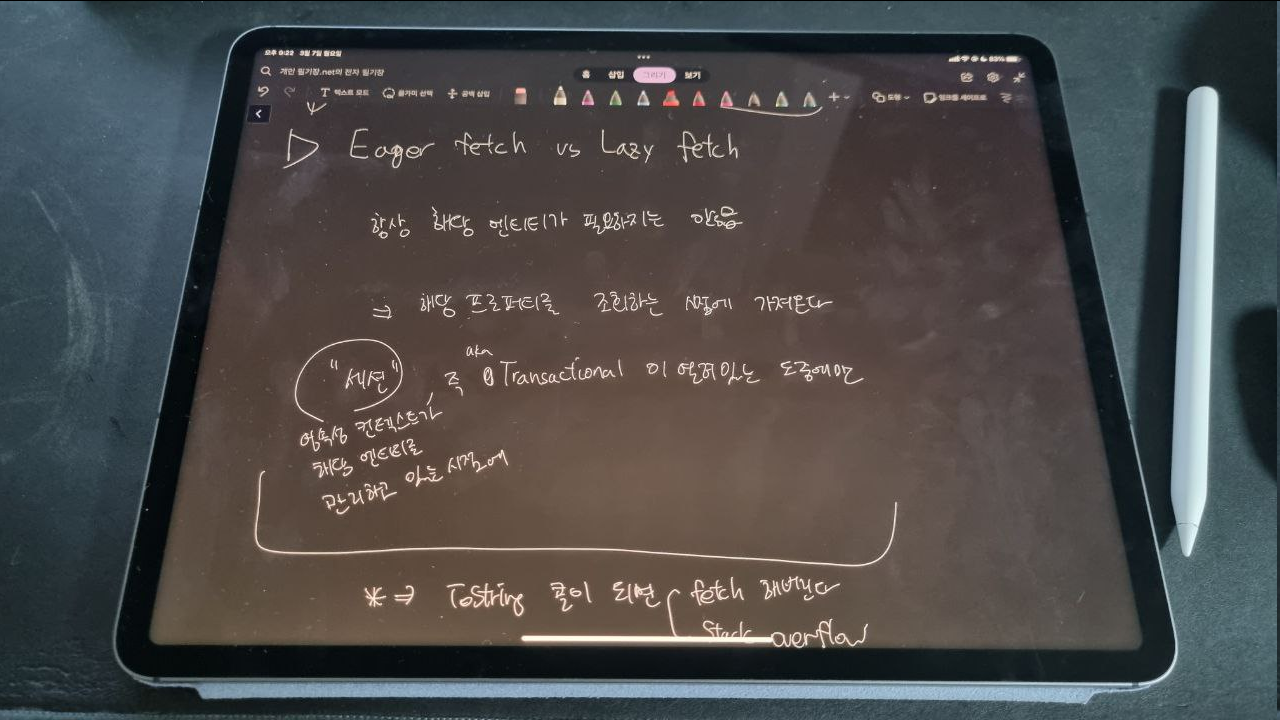 오후 9:22 3월 7일 월요일
83%
개인 필기장.net의 전자 필기장
홈 삽입 그리기 보기
텍스트 모드 올가미 선택 공백 삽입 도형 잉크를 셰이프로
Eager fetch vs Lazy fetch
항상 해당 엔티티가 필요하지는 않음
⇒ 해당 프로퍼티를 조회하는 시점에 가져온다
aka
"세션", 즉 @Transactional 이 열려있는 도중에만
영속성 컨텍스트가
해당 엔티티를
관리하고 있는 시점에
* ⇒ ToString 콜이 되면 fetch 해버린다
Stack overflow